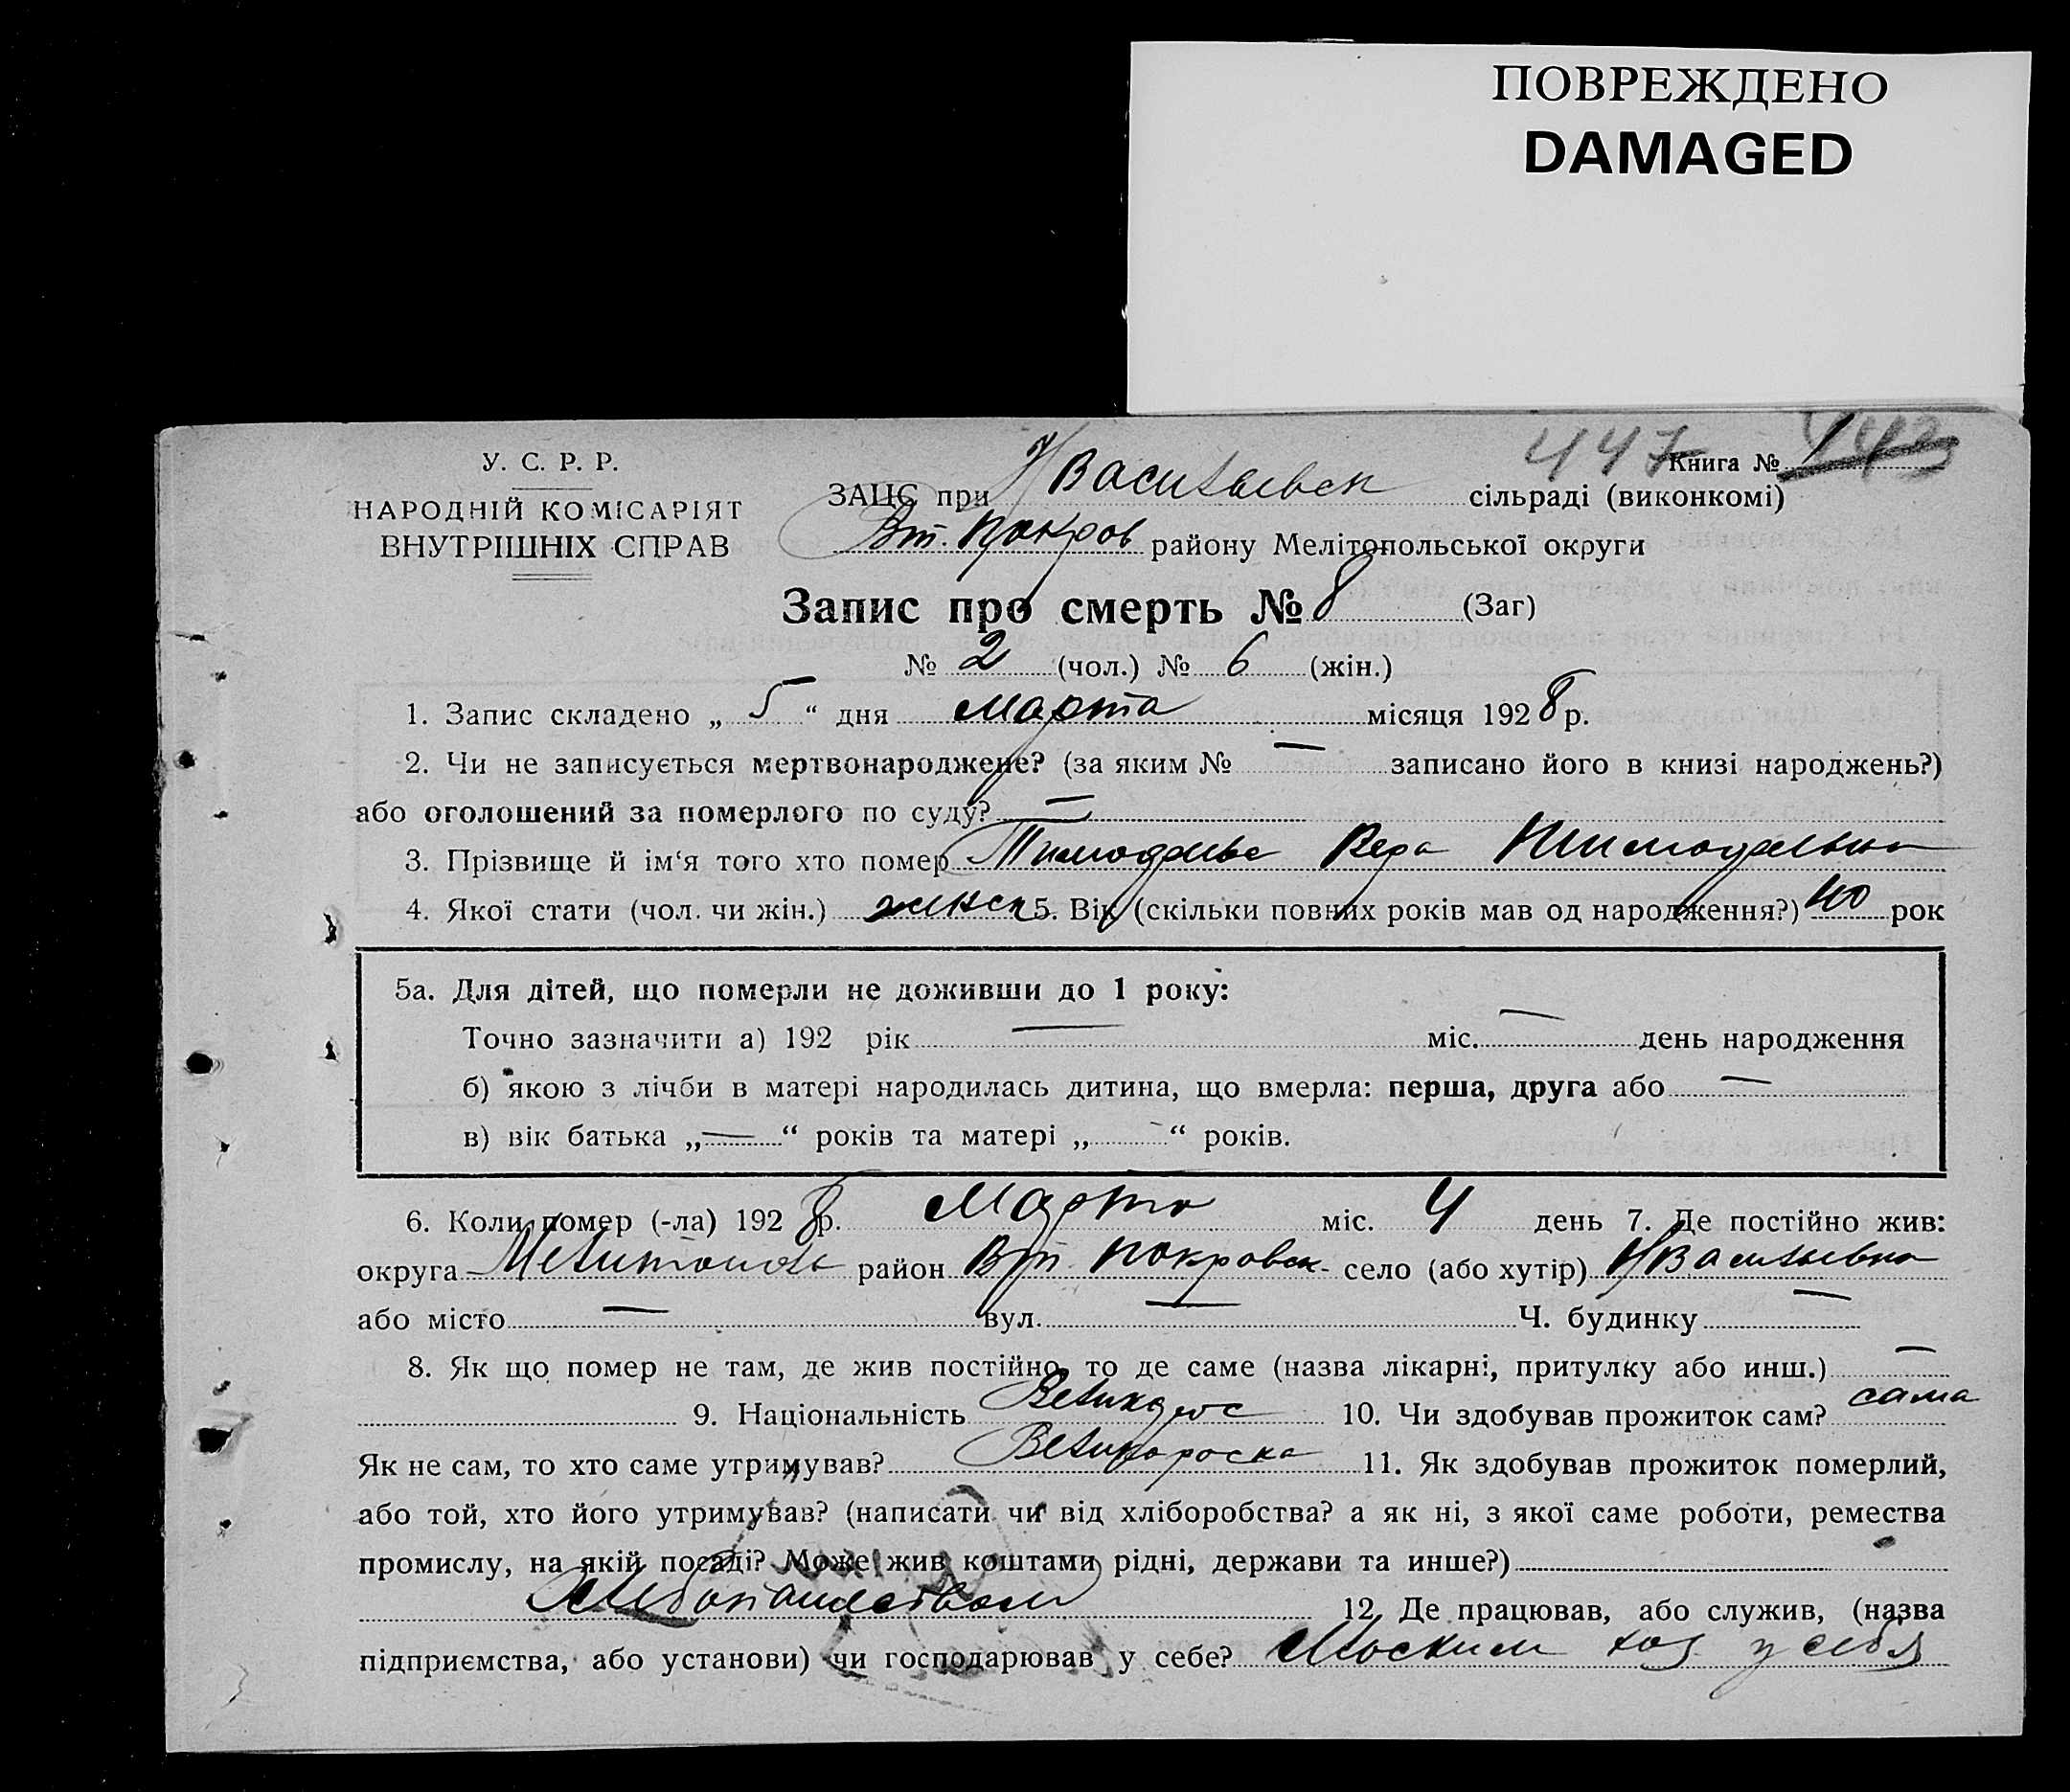 ПОВРЕЖДЕНО
DAMAGED
447
У. С. Р. Р.
НАРОДНІЙ КОМІСАРІЯТ
ВНУТРІШНІХ СПРАВ
Книга № 1
ЗАЦС при Н Васильевск сільраді (виконкомі)
Вт. Покров району Мелітопольської округи
Запис про смерть № 8 (Заг)
№ 2 (чол.) № 6 (жін.)
1. Запис складено „ 5 “ дня марта місяця 1928 р.
2. Чи не записується мертвонароджене? (за яким № — записано його в книзі народжень?)
або оголошений за померлого по суду? —
3. Прізвище й ім‘я того хто помер Вера
4. Якої статі (чол. чи жін.) женск 5. Вік (скільки повних років мав од народження?) 40 рок
5а. Для дітей, що померли не доживши до 1 року:
Точно зазначити а) 192 рік — міс. — день народження
б) якою з лічби в матері народилась дитина, що вмерла: перша, друга або —
в) вік батька „ — “ років та матері „ — “ років.
6. Коли помер (-ла) 1928 р. Марта міс. 4 день 7. Де постійно жив:
округа Мелитополь район Вт. Покровск- село (або хутір) Н Васильевка
або місто — вул. — Ч. будинку —
8. Як що помер не там, де жив постійно, то де саме (назва лікарні, притулку або инш.) —
9. Національність Великорос 10. Чи здобував прожиток сам? сама
Як не сам, то хто саме утримував? Великороска 11. Як здобував прожиток померлий,
або той, хто його утримував? (написати чи від хліборобства? а як ні, з якої саме роботи, ремества
промислу, на якій посаді? Може жив коштами рідні, держави та инше?)
Хлебопашеством 12. Де працював, або служив, (назва
підприємства, або установи) чи господарював у себе? хоз у себя